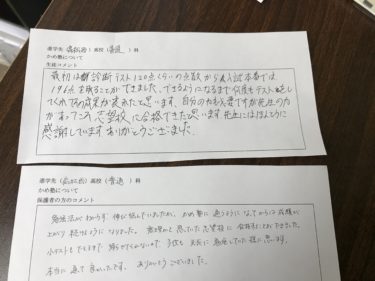 進学先（高松西）高校（普通）科
かめ塾について
生徒コメント
最初は診断テスト120点くらいの点数から入試本番では
196点を取ることができました。できるようになるまで何度もテストをして
くれての成果が表れたと思います。自分の力も必要ですが先生の力
があってこそ、志望校に合格できたと思います。先生にはほんとうに
感謝しています。ありがとうございました。
進学先（高松西）高校（普通）科
かめ塾について
保護者の方のコメント
勉強法がわからず、伸び悩んでいましたが、かめ塾に通うようになってからは成績が
上がり続けるようになりました。無理かと思っていた志望校に合格することができました。
小テストもできるまで帰らせてくれないので、子供も必死に勉強していた様に思います。
本当に通って良かったです。ありがとうございました。